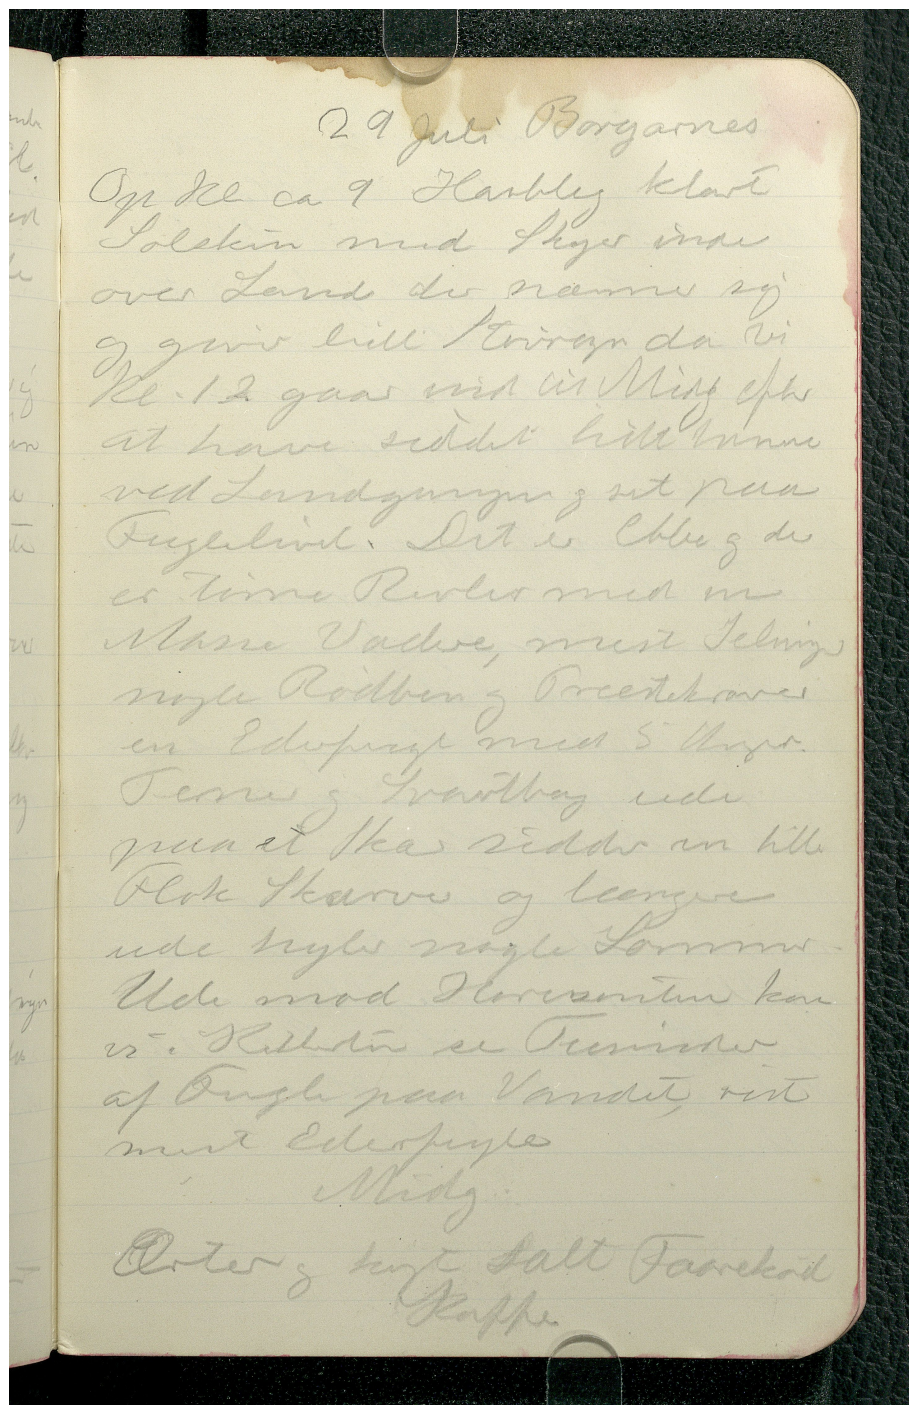 29 Juli Borgarnes
Op Kl ca 9 Havblik klart
Solskin med Skyer inde
over Land der nærmer sig
og giver lidt Støvregn da vi
Kl. 12 gaar ind til Midg efter
at have siddet lidt
ved Landgangen og set paa
Fuglelivet. Det er Ebbe og der
er tørre Revler med en
Masse Vadere, mest
nogle Rødben og Præstekraver
en Ederfugl med 5 Unger.
Terner og Svartbag ude
paa et Skær sidder en lille
Flok Skarver og længere
ude hyler nogle Lommer.
Ude mod Horesonten kan
vi i Kikkerten se Tusinder
af Fugle paa Vandet, vist
mest Ederfugle
Midg.
Ærter og kogt Salt Faarekød
Kaffe